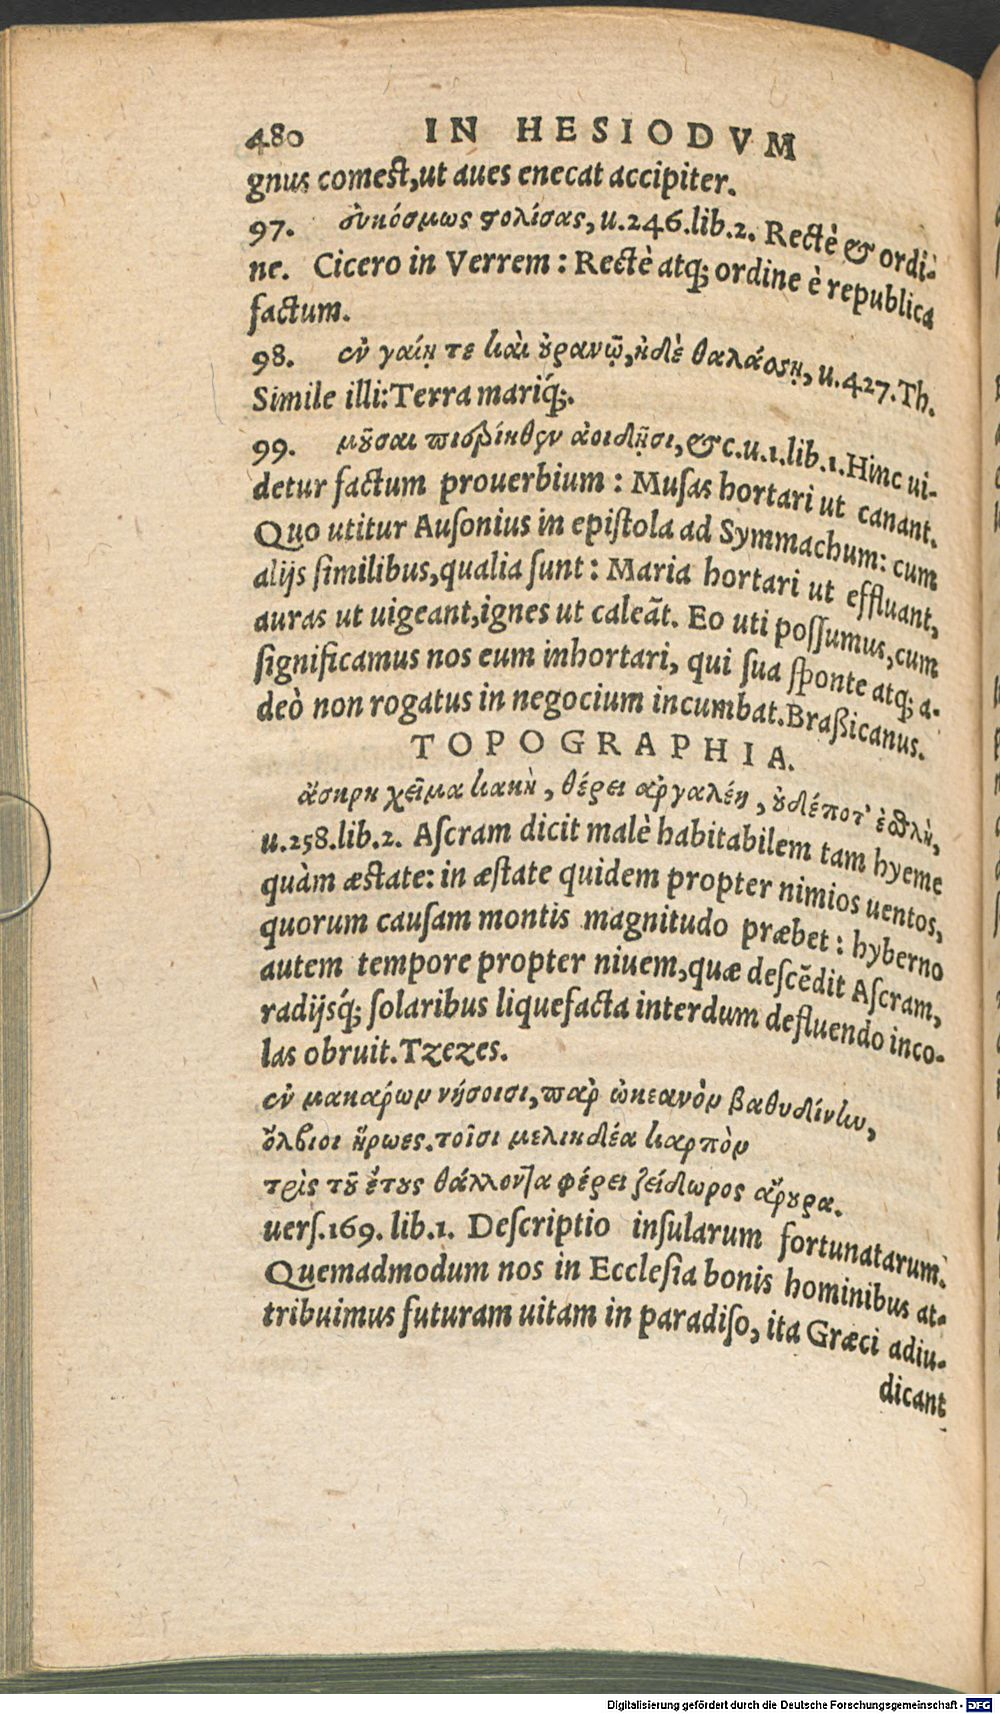 480 IN HESIODVM
gnus comest, ut aues enecat accipiter.
97. εὐκόσμως στολίσας, u.246.lib.2. Rectè & ordi-
ne. Cicero in Verrem: Rectè atq; ordine è republica
factum.
98. ἐν γαίῃ τε καὶ οὐρανῷ, ἠδὲ θαλάσσῃ, u.427.Th.
Simile illi: Terra mariq́;.
99. μοῦσαι πιερίηθεν ἀοιδῇσι, &c.u.1.lib.1. Hinc ui-
detur factum prouerbium: Musas hortari ut canant.
Quo utitur Ausonius in epistola ad Symmachum: cum
alijs similibus, qualia sunt: Maria hortari ut effluant,
auras ut uigeant, ignes ut caleãt. Eo uti possumus, cum
significamus nos eum inhortari, qui sua sponte atq; a-
deò non rogatus in negocium incumbat. Braßicanus.
TOPOGRAPHIA.
ἄσκρη χεῖμα κακὴ, θέρει ἀργαλέη, οὐδέποτ' ἐσθλὴ,
u.258.lib.2. Ascram dicit malè habitabilem tam hyeme
quàm æstate: in æstate quidem propter nimios uentos,
quorum causam montis magnitudo præbet: hyberno
autem tempore propter niuem, quæ descẽdit Ascram,
radijsq́; solaribus liquefacta interdum defluendo inco-
las obruit. Tzezes.
ἐν μακάρων νήσοισι, παρ' ὠκεανὸν βαθυδίνην,
ὄλβιοι ἥρωες. τοῖσι μελιηδέα καρπὸν
τρὶς τοῦ ἔτους θάλλοντα φέρει ζείδωρος ἄρουρα.
uers.169. lib.1. Descriptio insularum fortunatarum.
Quemadmodum nos in Ecclesia bonis hominibus at-
tribuimus futuram uitam in paradiso, ita Græci adiu-
dicant
Digitalisierung gefördert durch die Deutsche Forschungsgemeinschaft - DFG